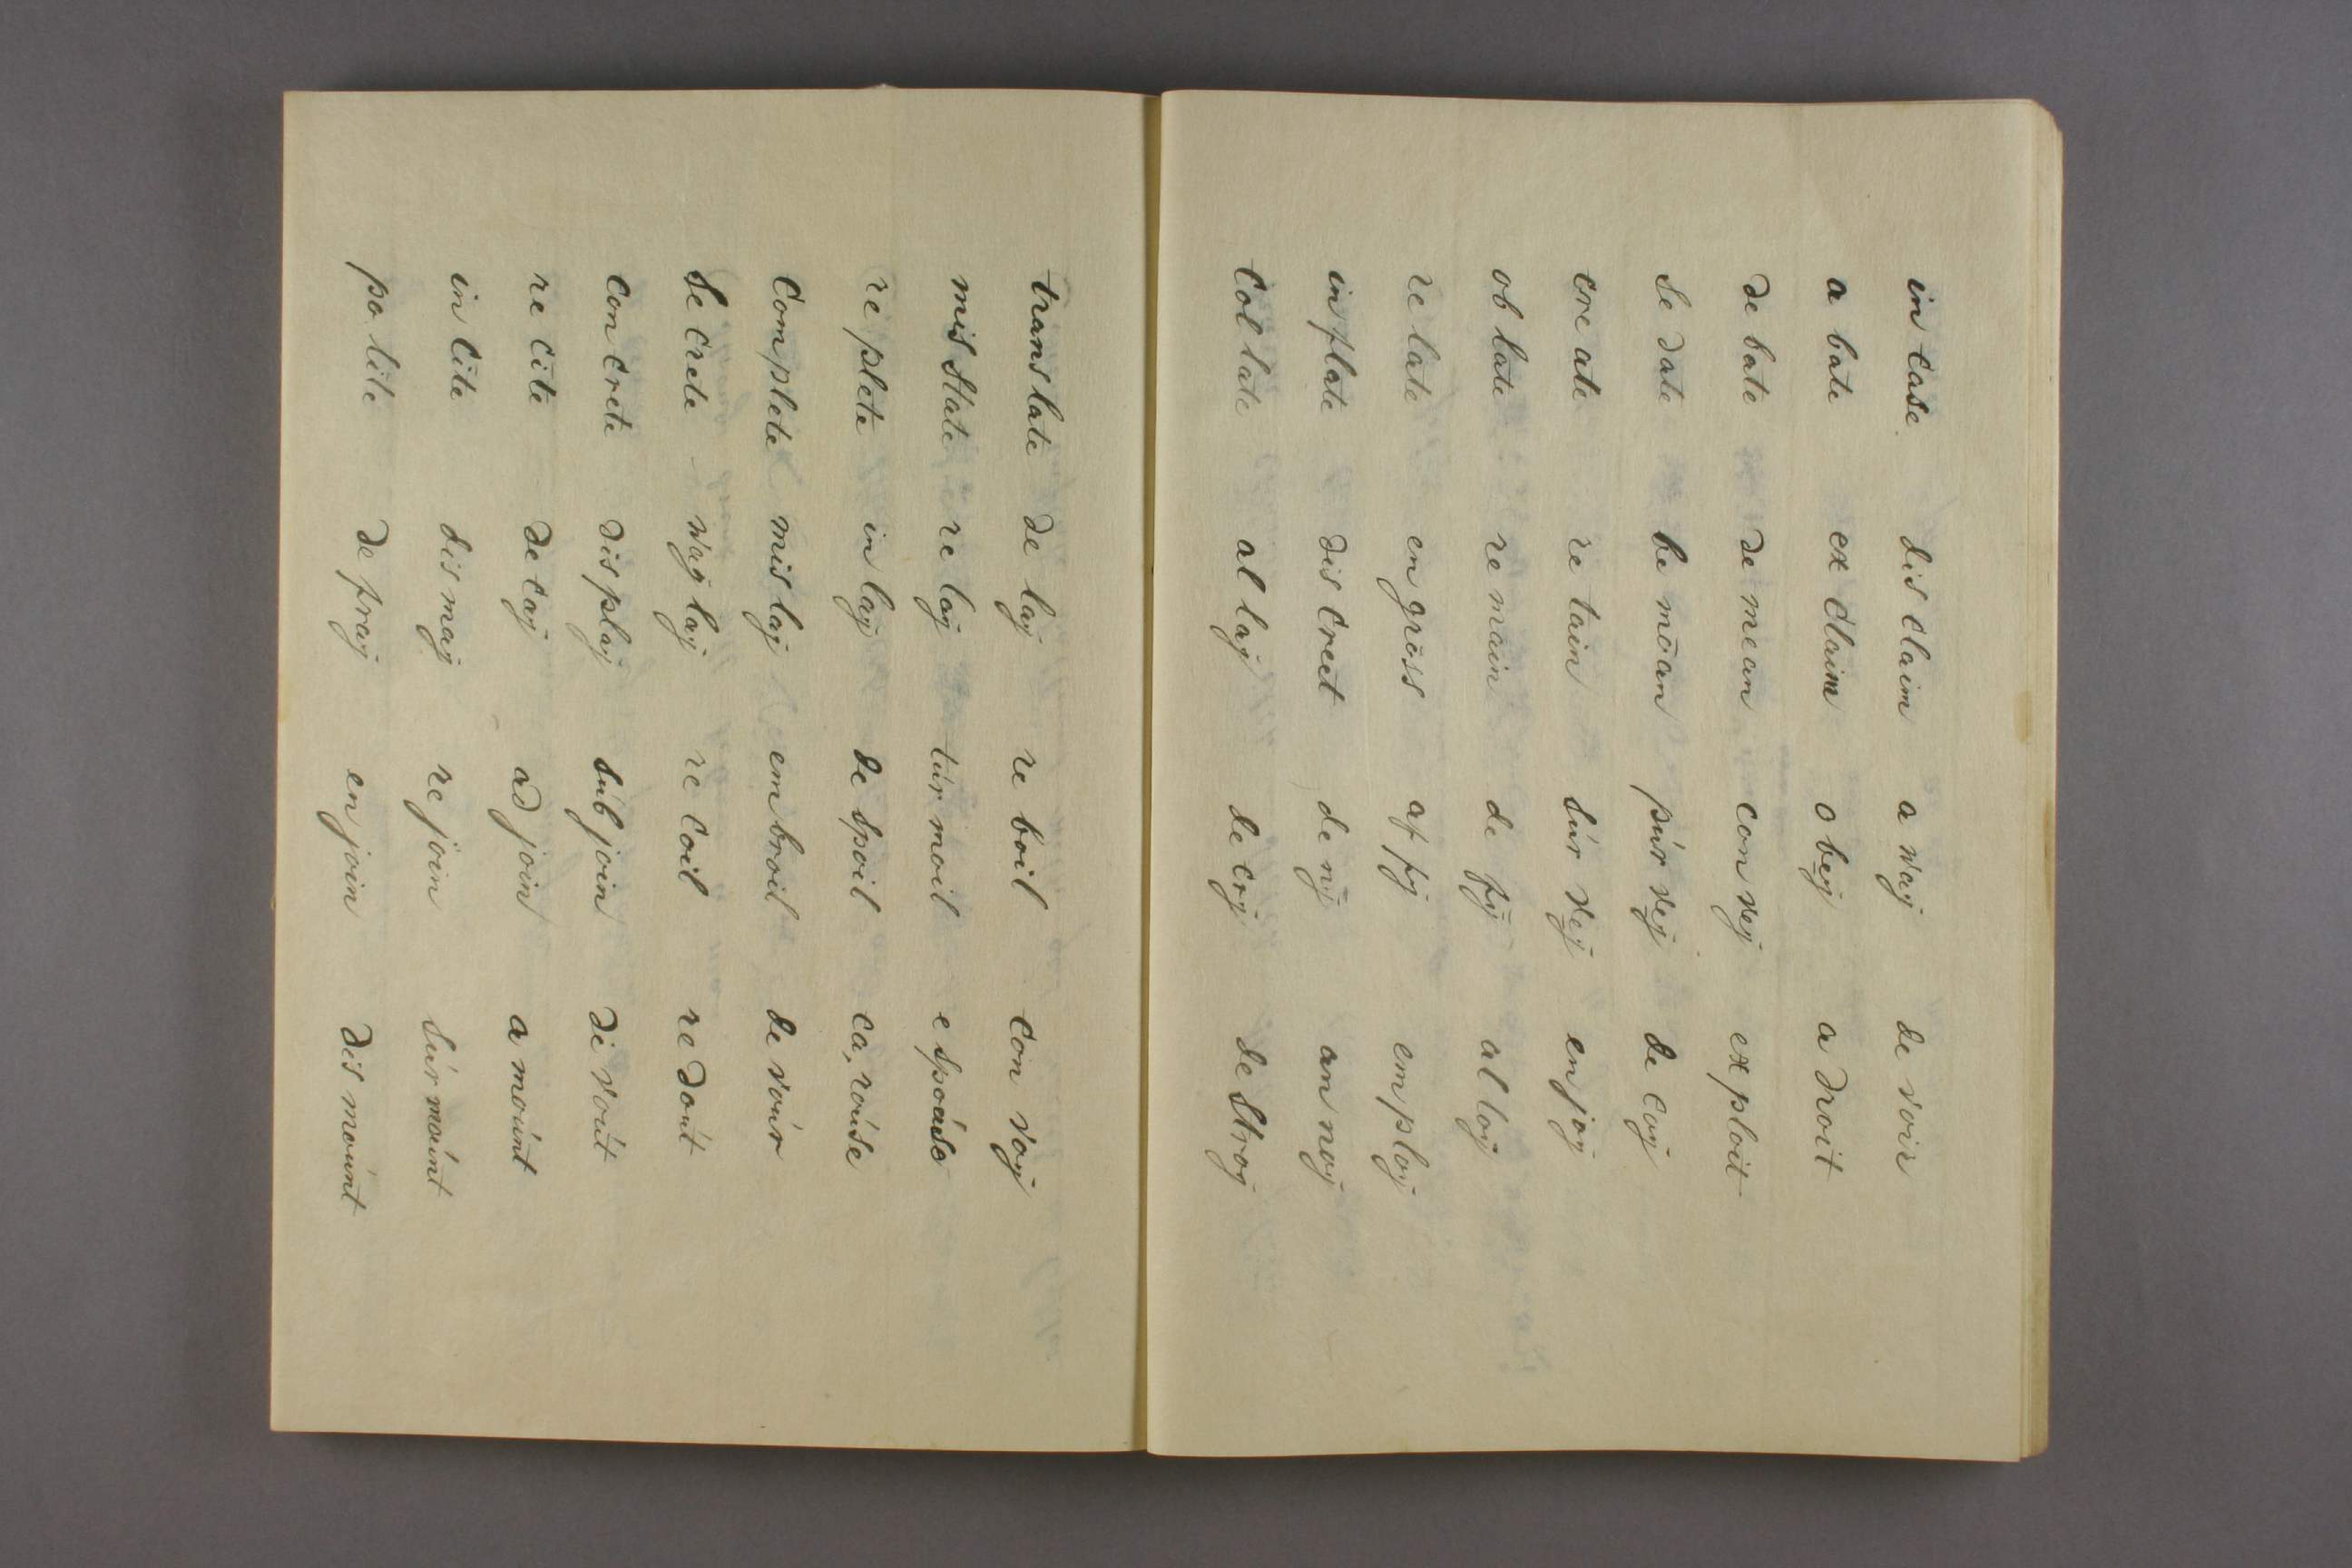 in case dis claim a way de voir
a bate ex claim o bey a droit
de bate de mean con vey ex ploit
se date be moan pur vey de coy
cre ate re tain sur vey en joy
ob late re main de fy al loy
re late en gross af fy em ploy
in flate dis creet de ny an noy
col late al lay de cry de stroy
trans late de lay re boil con voy
mis state re lay tur moil e spouse
re plete in lay de spoil ca rouse
com plete mis lay em broil de vour
se crete way lay re coil re dout
con crete dis play sub join de vout
re cite de cay ad join a mount
in cite dis may re join sur mount
po lite de fray en join dis mount